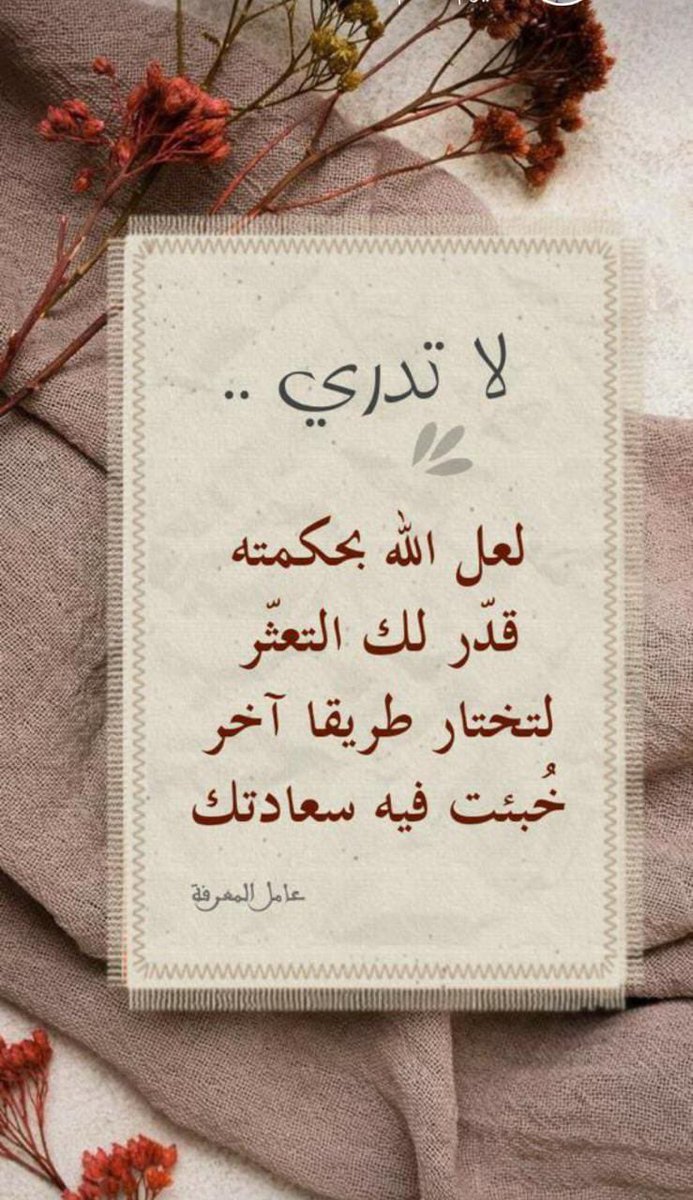 لا تدري ..
لعل الله بحكمته
قدّر لك التعثّر
لتختار طريقا آخر
خُبئت فيه سعادتك
عامل المعرفة